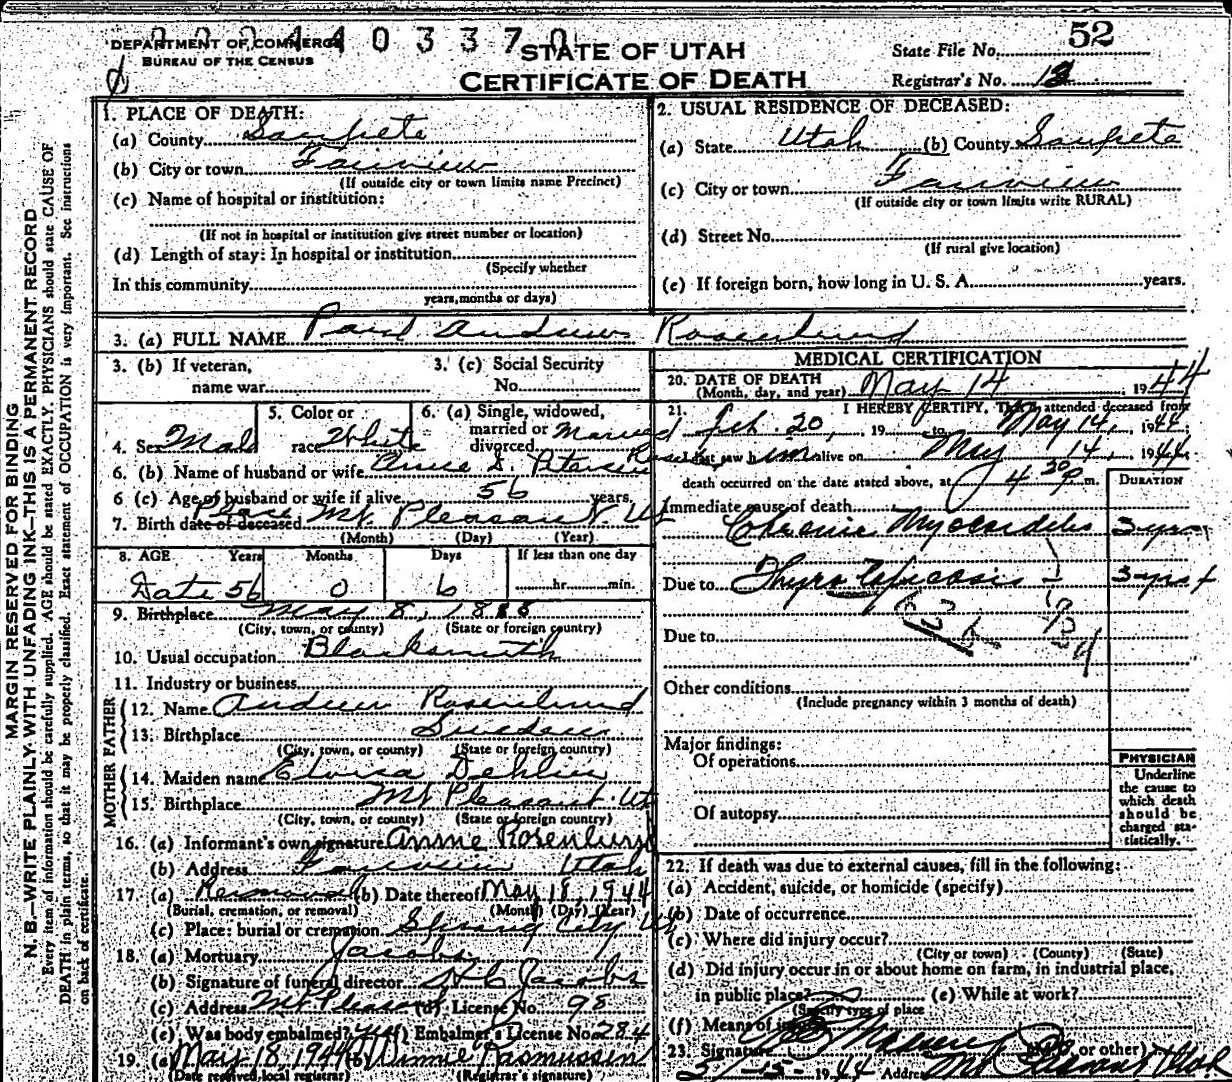 0 0 0 4 4 0 3 3 7 0
DEPARTMENT OF COMMERCE
BUREAU OF THE CENSUS
STATE OF UTAH
CERTIFICATE OF DEATH
State File No. 52
Registrar's No. 13
MARGIN RESERVED FOR BINDING
N. B.—WRITE PLAINLY WITH UNFADING INK—THIS IS A PERMANENT RECORD
Every item of information should be carefully supplied. AGE should be stated EXACTLY. PHYSICIANS should state CAUSE OF
DEATH in plain terms, so that it may be properly classified. Exact statement of OCCUPATION is very important. See instructions
on back of certificate.
1. PLACE OF DEATH:
(a) County Sanpete
(b) City or town Fairview
(If outside city or town limits name Precinct)
(c) Name of hospital or institution:
(If not in hospital or institution give street number or location)
(d) Length of stay: In hospital or institution
(Specify whether
In this community
years, months or days)
2. USUAL RESIDENCE OF DECEASED:
(a) State Utah (b) County Sanpete
(c) City or town Fairview
(If outside city or town limits write RURAL)
(d) Street No.
(If rural give location)
(e) If foreign born, how long in U. S. A. years.
3. (a) FULL NAME Paul Andrew Rosenlund
3. (b) If veteran, name war
3. (c) Social Security No.
4. Sex Male
5. Color or race White
6. (a) Single, widowed, married or divorced Married
6. (b) Name of husband or wife Annie S. Petersen
6 (c) Age of husband or wife if alive 56 years.
7. Birth date of deceased Place Mt. Pleasant, Ut
(Month) (Day) (Year)
8. AGE Years Months Days If less than one day
Date 56 0 6 hr. min.
9. Birthplace May 8, 1888
(City, town, or county) (State or foreign country)
10. Usual occupation Blacksmith
11. Industry or business
FATHER
12. Name Andrew Rosenlund
13. Birthplace Sweden
(City, town, or county) (State or foreign country)
MOTHER
14. Maiden name Elvisa Dehlin
15. Birthplace Mt Pleasant Ut
(City, town, or county) (State or foreign country)
16. (a) Informant's own signature Annie Rosenlund
(b) Address Fairview Utah
17. (a) Removal (b) Date thereof May 18, 1944
(Burial, cremation, or removal) (Month) (Day) (Year)
(c) Place: burial or cremation City Ut
18. (a) Mortuary Jacobs
(b) Signature of funeral director H C Jacobs
(c) Address Mt Pleasant (d) License No. 98
(e) Was body embalmed? yes (f) Embalmer's License No. 284
19. (a) May 18, 1944 (b) Winnie Rasmussen
(Date received local registrar) (Registrar's signature)
MEDICAL CERTIFICATION
20. DATE OF DEATH May 14 1944
(Month, day, and year)
21. I HEREBY CERTIFY, That I attended deceased from
Feb. 20, 19 to May 14, 1944
I last saw him alive on May 14, 1944
death occurred on the date stated above, at 4 30 P m.
DURATION
Immediate cause of death
Chronic Myocarditis 3 yrs
Due to 3 yrs +
Due to
Other conditions
(Include pregnancy within 3 months of death)
Major findings:
Of operations
Of autopsy
PHYSICIAN
Underline
the cause to
which death
should be
charged sta-
tistically.
22. If death was due to external causes, fill in the following:
(a) Accident, suicide, or homicide (specify)
(b) Date of occurrence
(c) Where did injury occur?
(City or town) (County) (State)
(d) Did injury occur in or about home on farm, in industrial place,
in public place? (e) While at work?
(Specify type of place
(f) Means of injury
23. Signature (M.D. or other)
5/-15- 1944 Address Mt Pleasant Utah